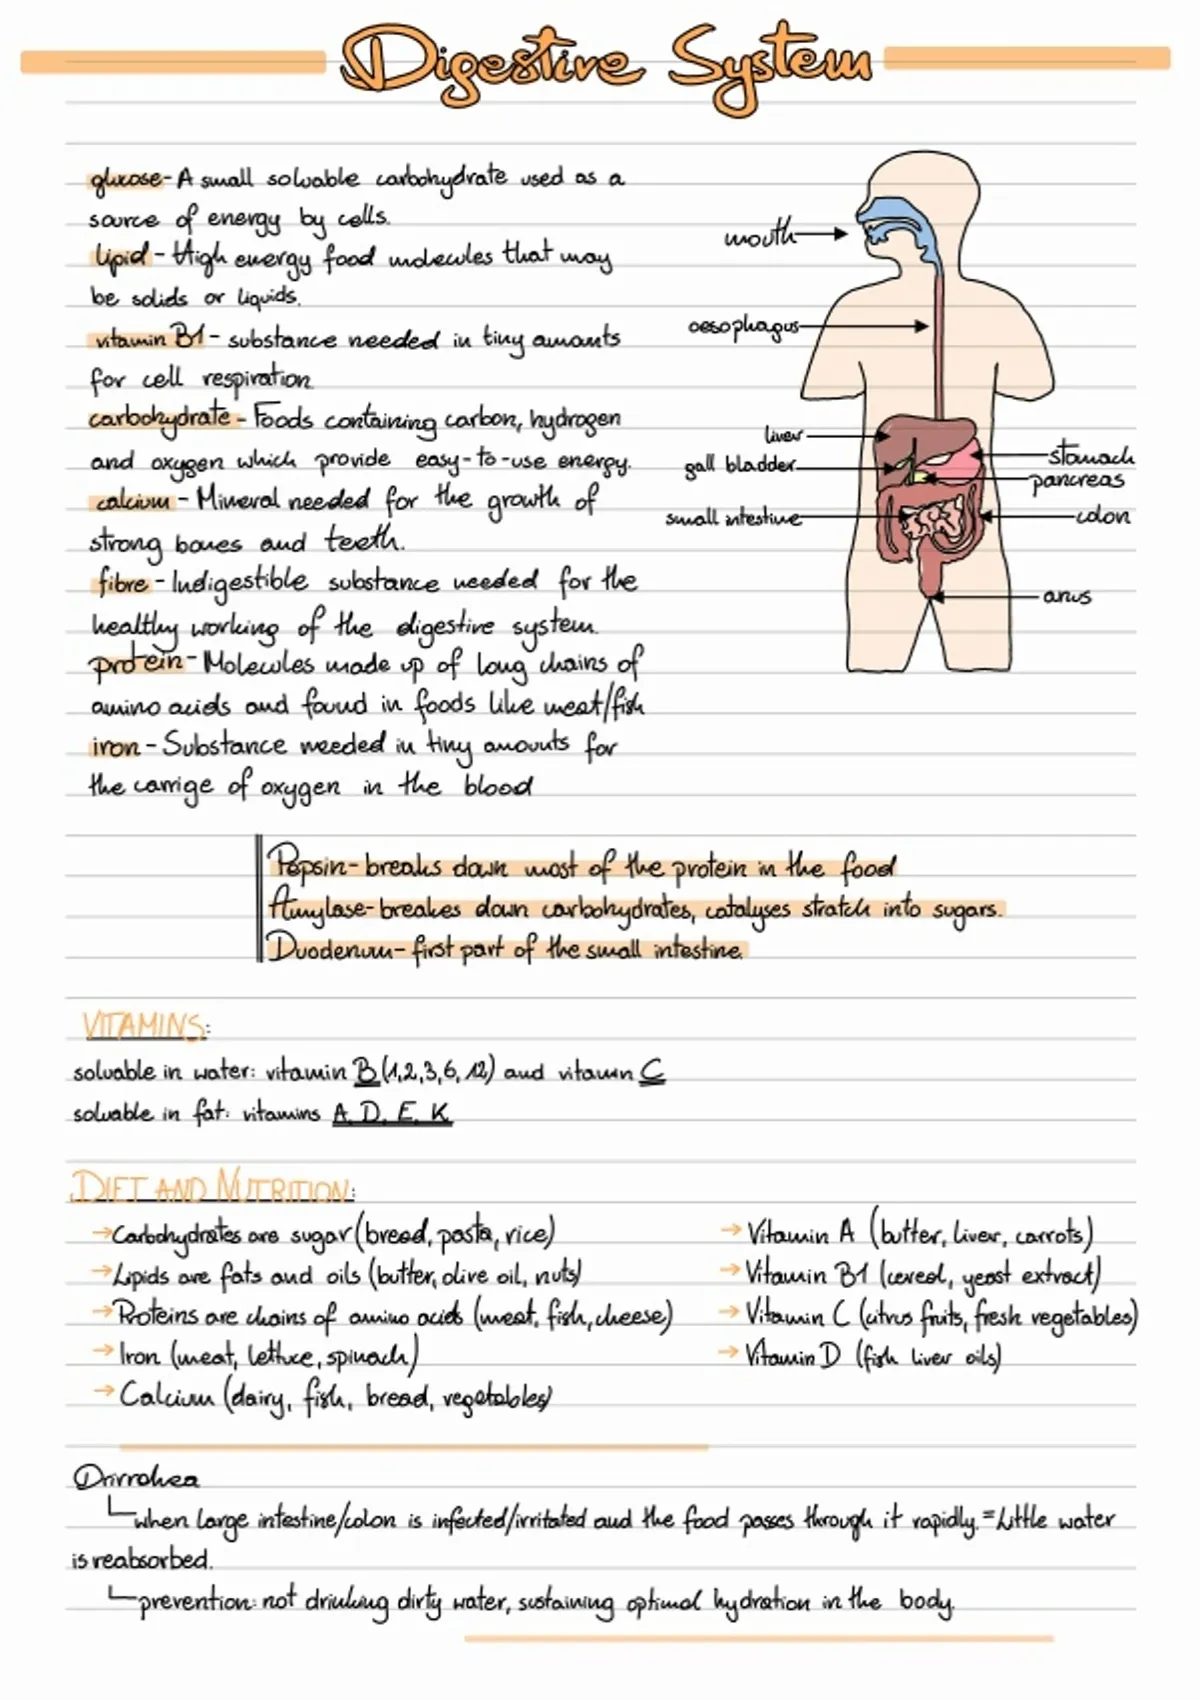 Digestive System
glucose - A small soluable carbohydrate used as a
source of energy by cells.
lipid - High energy food molecules that may
be solids or liquids.
vitamin B1 - substance needed in tiny amounts
for cell respiration
carbohydrate - Foods containing carbon, hydrogen
and oxygen which provide easy-to-use energy.
calcium - Mineral needed for the growth of
strong bones and teeth.
fibre - Indigestible substance needed for the
healthy working of the digestive system.
protein - Molecules made up of long chains of
amino acids and found in foods like meat/fish
iron - Substance needed in tiny amounts for
the carrige of oxygen in the blood
mouth
oesophagus
liver
gall bladder
small intestine
stomach
pancreas
colon
anus
Pepsin - breaks down most of the protein in the food
Amylase - breakes down carbohydrates, catalyses stratch into sugars.
Duodenum - first part of the small intestine.
VITAMINS:
soluable in water: vitamin B (1,2,3,6,12) and vitamin C
soluable in fat: vitamins A, D, E, K
DIET AND NUTRITION:
→ Carbohydrates are sugar (bread, pasta, rice)
→ Lipids are fats and oils (butter, olive oil, nuts)
→ Proteins are chains of amino acids (meat, fish, cheese)
→ Iron (meat, lettuce, spinach)
→ Calcium (dairy, fish, bread, vegetables)
→ Vitamin A (butter, liver, carrots)
→ Vitamin B1 (cereal, yeast extract)
→ Vitamin C (citrus fruits, fresh vegetables)
→ Vitamin D (fish liver oils)
Drirrohea
when large intestine/colon is infected/irritated and the food passes through it rapidly. = Little water
is reabsorbed.
prevention: not drinking dirty water, sustaining optimal hydration in the body.